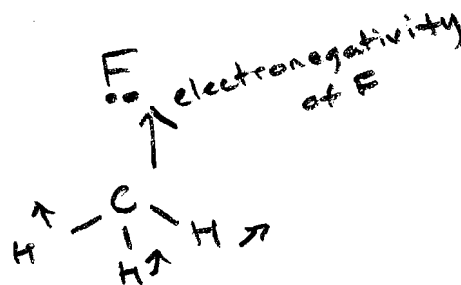 F
electronegativity
of F
C
H H
H